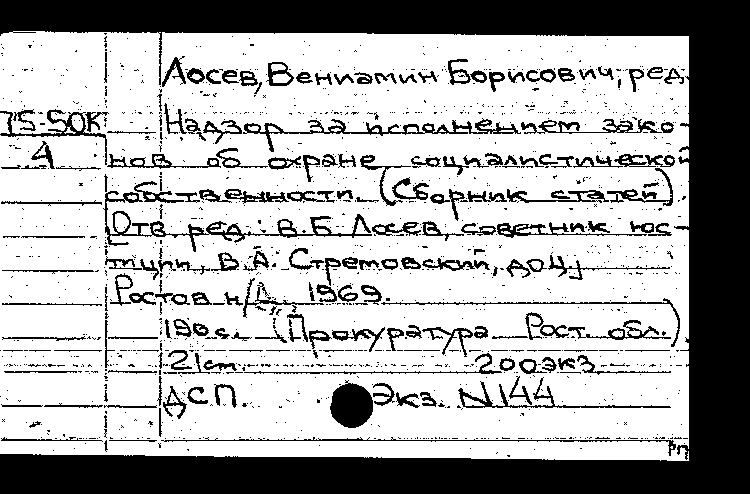 Лосев, Вениамин Борисович, ред.
75-50к Надзор за исполнением зако-
4 нов об охране социалистической
собственности. (Сборник статей).
Отв ред.: В.Б. Лосев, советник юс-
тиции, В.А. Стремовский, доц.
Ростов н/Д, 1969.
190 с. (Прокуратура Рост. обл.).
21 см 200 экз
ДСП. Экз. N144